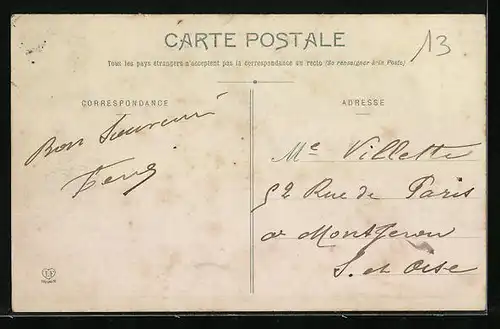 CARTE POSTALE
13
Tous les pays étrangers n'acceptent pas la correspondance au recto (Se renseigner à la Poste)
CORRESPONDANCE
Bon Souvenir
ADRESSE
Me Villette
52 Rue de Paris
a Montgeron
S. et Oise